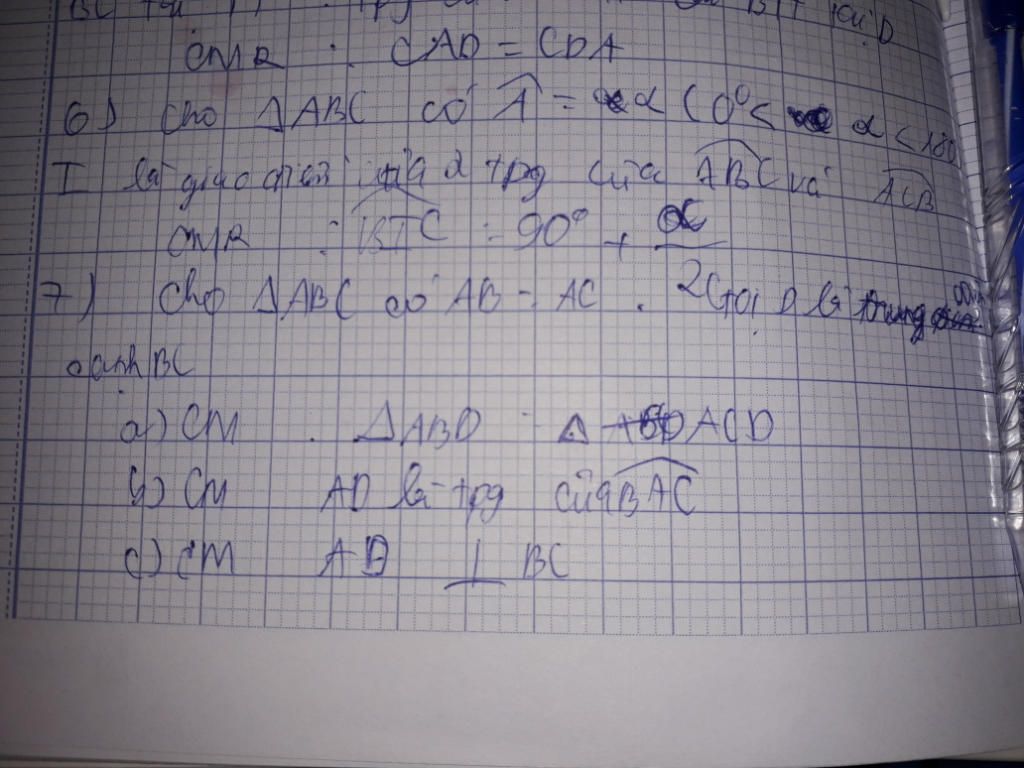 CMR : CAD = CDA
6) Cho ΔABC có Â = α (0° < α < 180
I là giao điểm của 2 tpg của ABC và ACB
CMR : BIC = 90° + α/2
7) Cho ΔABC có AB = AC . Gọi D là trung
cạnh BC
a) CM . ΔABD = Δ ACD
b) CM AD là tpg của BAC
c) CM AD ⊥ BC